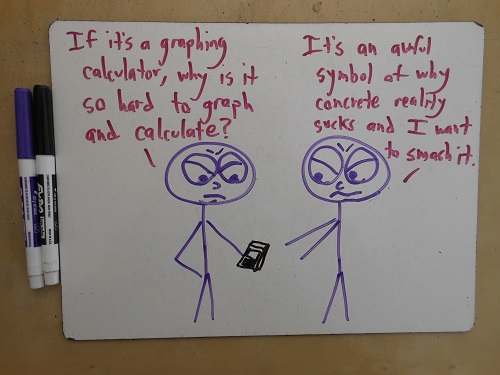 If it's a graphing
calculator, why is it
so hard to graph
and calculate?
It's an awful
symbol of why
concrete reality
sucks and I want
to smash it.
EXPO